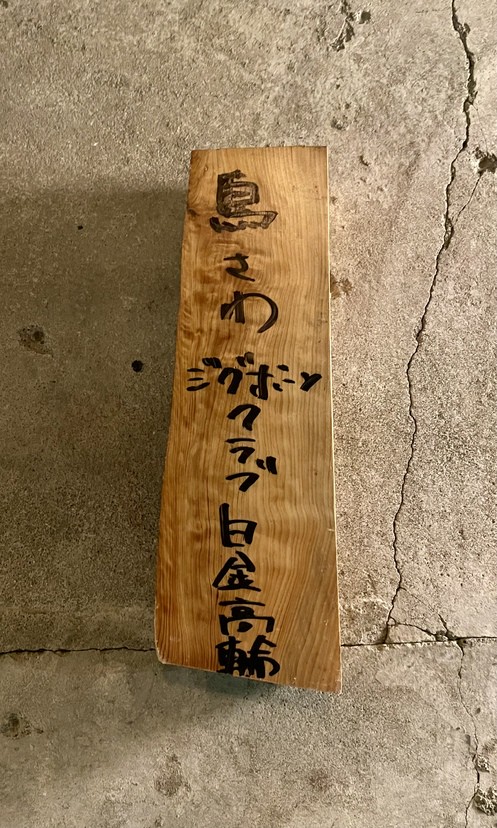 鳥さわ
ジグボーン
クラブ
白金高輪